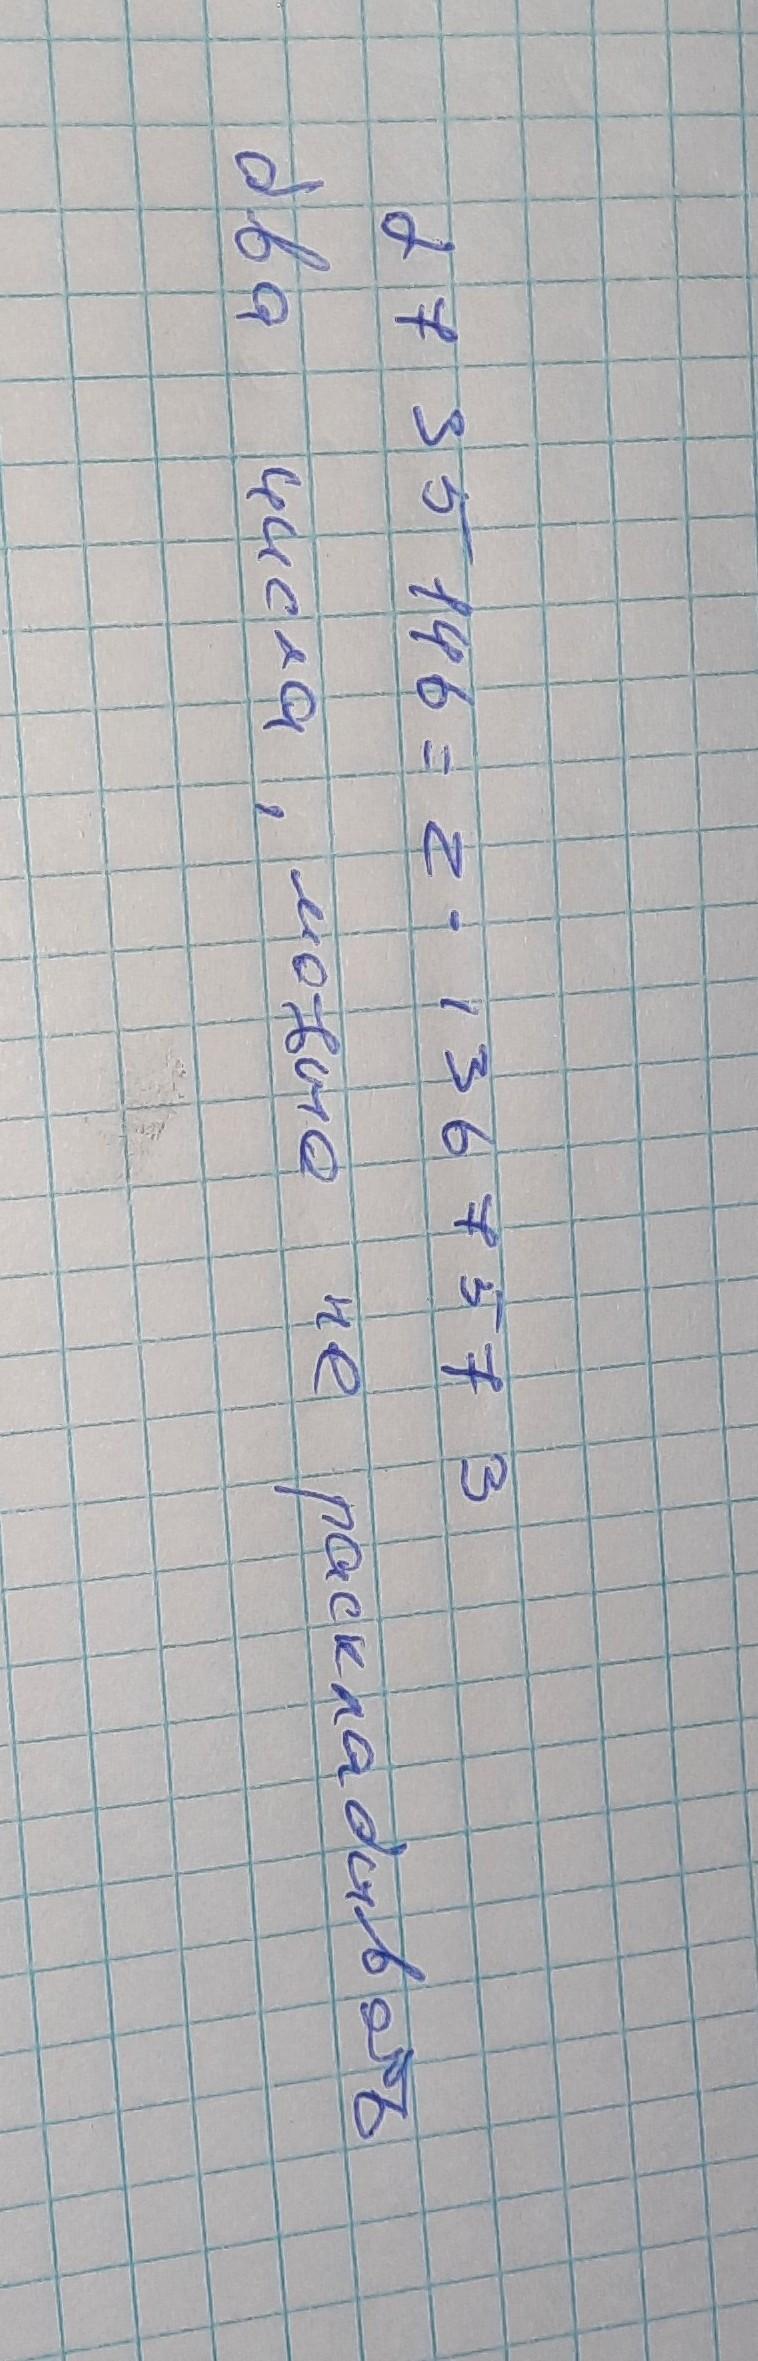 27 35 146 = 2 · 1367573
два числа, можно не раскладывать